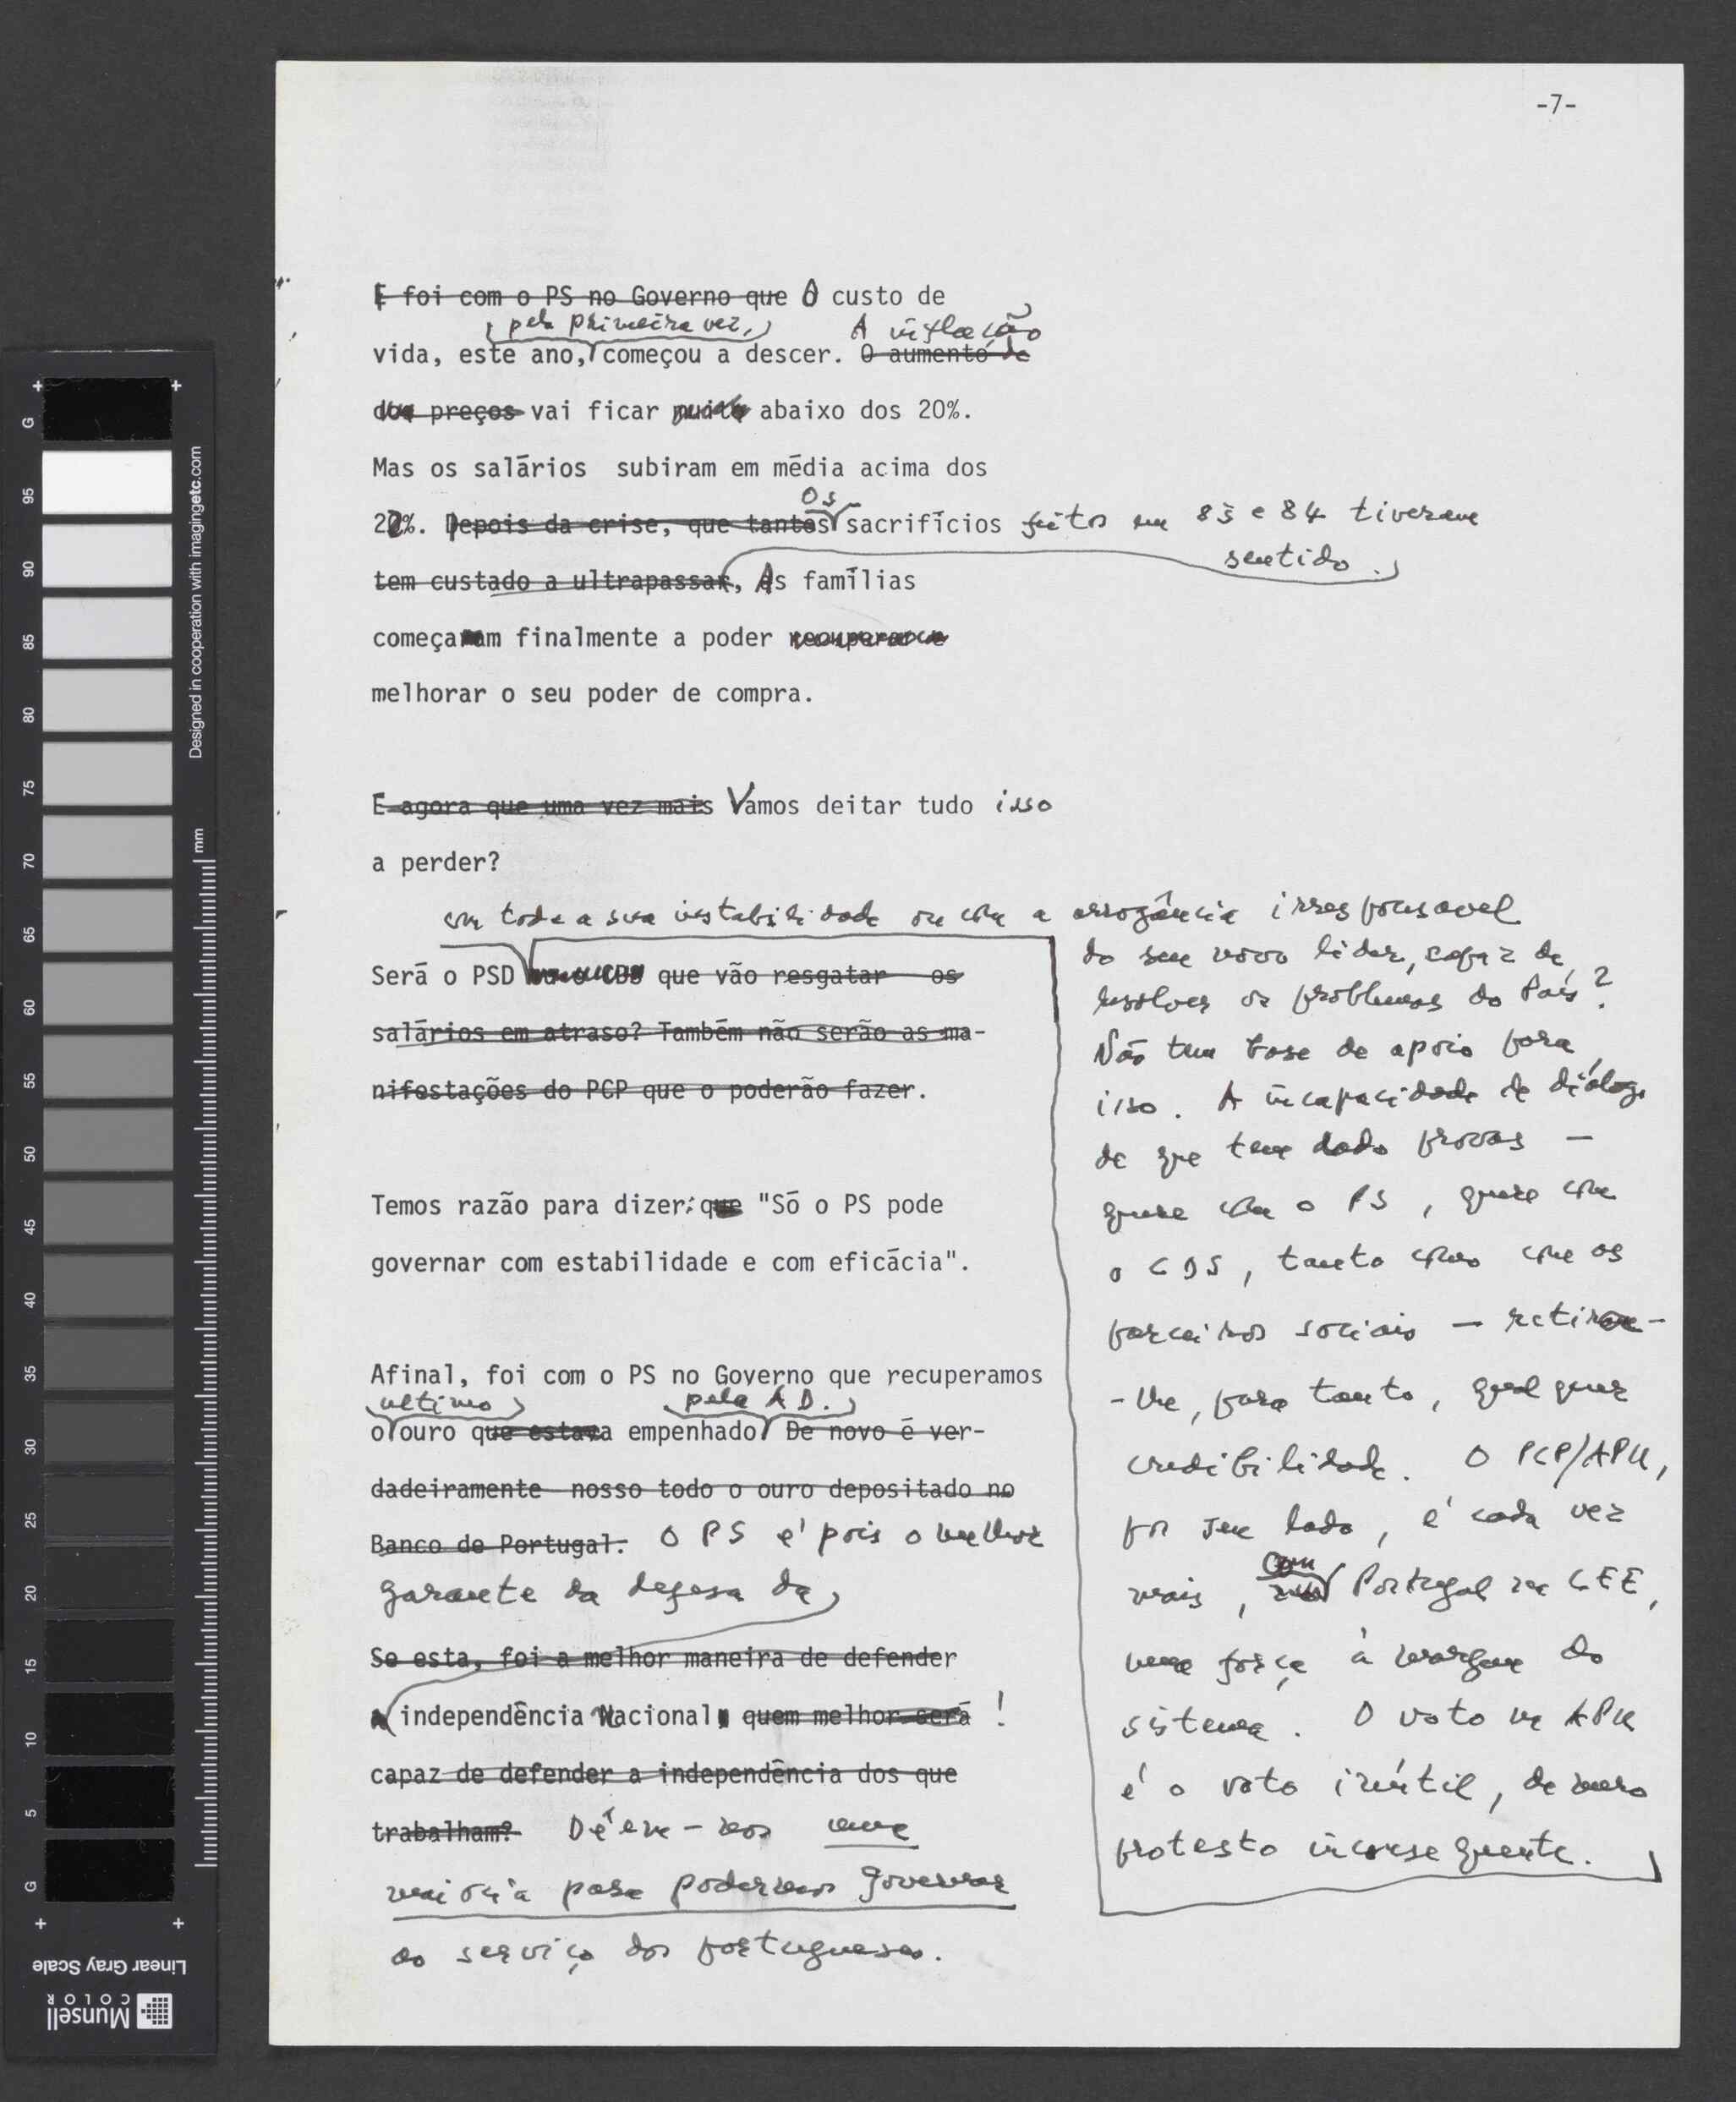 -7-
E foi com o PS no Governo que O custo de
pela primeira vez, A inflação
vida, este ano, começou a descer. O aumento de
dos preços vai ficar muito abaixo dos 20%.
Mas os salários subiram em média acima dos
os
22%. Depois da crise, que tantos sacrifícios feitos em 83 e 84 tiveram
sentido.
tem custado a ultrapassar, As famílias
começaram finalmente a poder recuperar e
melhorar o seu poder de compra.
E agora que uma vez mais Vamos deitar tudo isso
a perder?
com toda a sua instabilidade ou com a arrogância irresponsavel
do seu novo lider, capaz de
resolver os problemas do País?
Não tem base de apoio para
isso. A incapacidade de diálogo
de que tem dado provas —
quer com o PS, quer com
o CDS, tanto como com os
parceiros sociais — retira-
-lhe, para tanto, qualquer
credibilidade. O PCP/APU,
por seu lado, é cada vez
mais, com Portugal na CEE,
uma força à margem do
sistema. O voto na APU
é o voto inútil, de mero
protesto inconsequente.
Será o PSD ou o CDS que vão resgatar os
salários em atraso? Também não serão as ma-
nifestações do PCP que o poderão fazer.
Temos razão para dizer: que "Só o PS pode
governar com estabilidade e com eficácia".
Afinal, foi com o PS no Governo que recuperamos
ultimo pela AD.
o ouro que estava empenhado De novo é ver-
dadeiramente nosso todo o ouro depositado no
Banco de Portugal. O PS é pois o melhor
garante da defesa da
Se esta, foi a melhor maneira de defender
a independência Nacional, quem melhor será !
capaz de defender a independência dos que
trabalham? Dêem-nos uma
maioria para podermos governar
ao serviço dos portugueses.
Designed in cooperation with imagingetc.com
mm
G
95
90
85
80
75
70
65
60
55
50
45
40
35
30
25
20
15
10
5
G
Linear Gray Scale
Munsell
COLOR